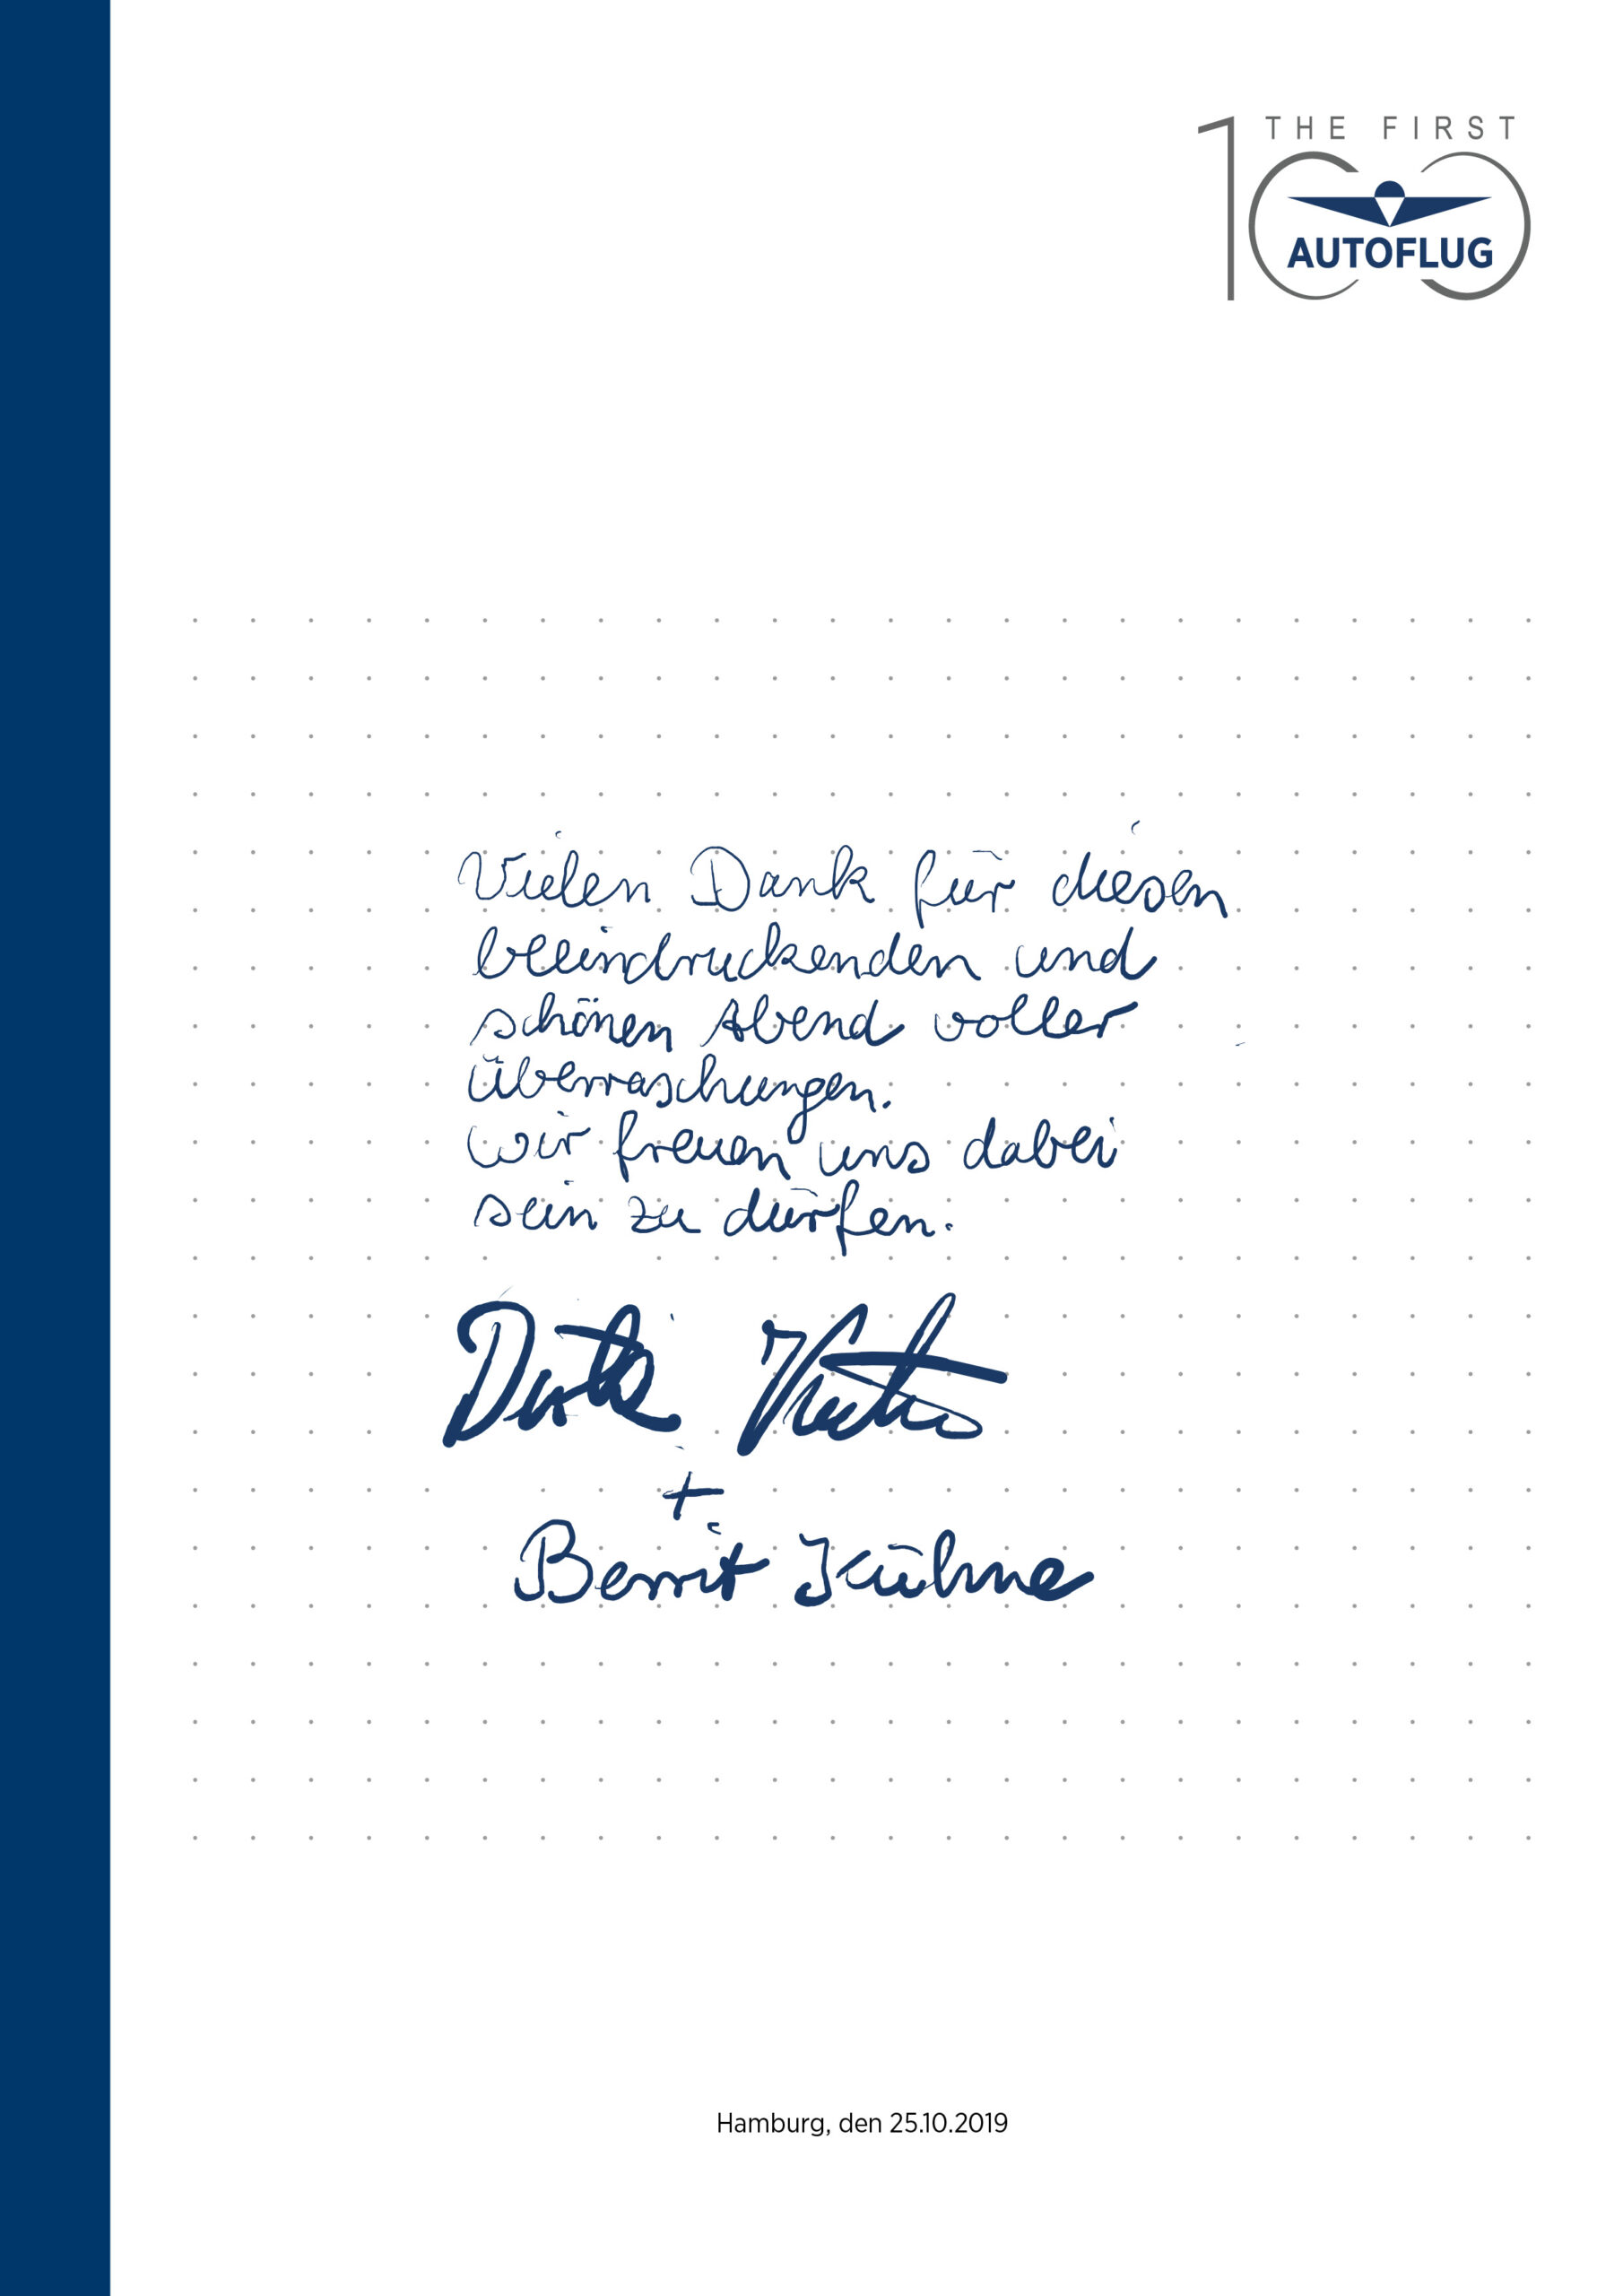 THE FIRST
100
AUTOFLUG
Vielen Dank für diesen
beeindruckenden und
schönen Abend voller
Überraschungen.
Wir freuen uns dabei
sein zu dürfen.
+
Berrit Kühne
Hamburg, den 25.10.2019